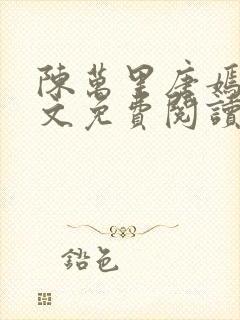 陳萬里唐嫣
文免費閱讀
鉛色